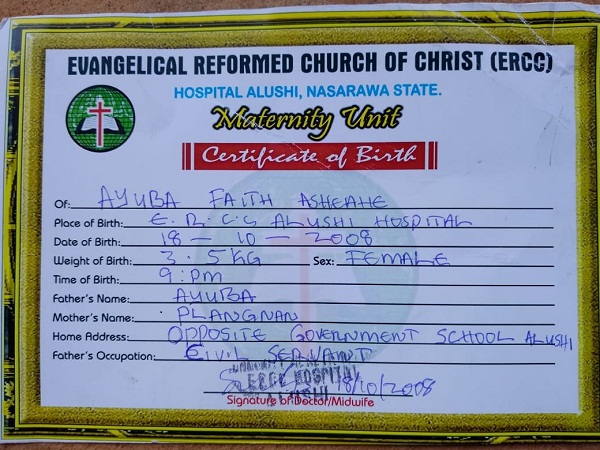 EVANGELICAL REFORMED CHURCH OF CHRIST (ERCC)
HOSPITAL ALUSHI, NASARAWA STATE.
Maternity Unit
Certificate of Birth
Of: AYUBA FAITH ASHEAHE
Place of Birth: E.R.C.C ALUSHI HOSPITAL
Date of Birth: 18 - 10 - 2008
Weight of Birth: 3.5KG Sex: FEMALE
Time of Birth: 9:PM
Father's Name: AYUBA
Mother's Name: PLANGNAN
Home Address: OPPOSITE GOVERNMENT SCHOOL ALUSHI
Father's Occupation: CIVIL SERVANT
ERCC HOSPITAL
18/10/2008
ALUSHI
Signature of Doctor/Midwife